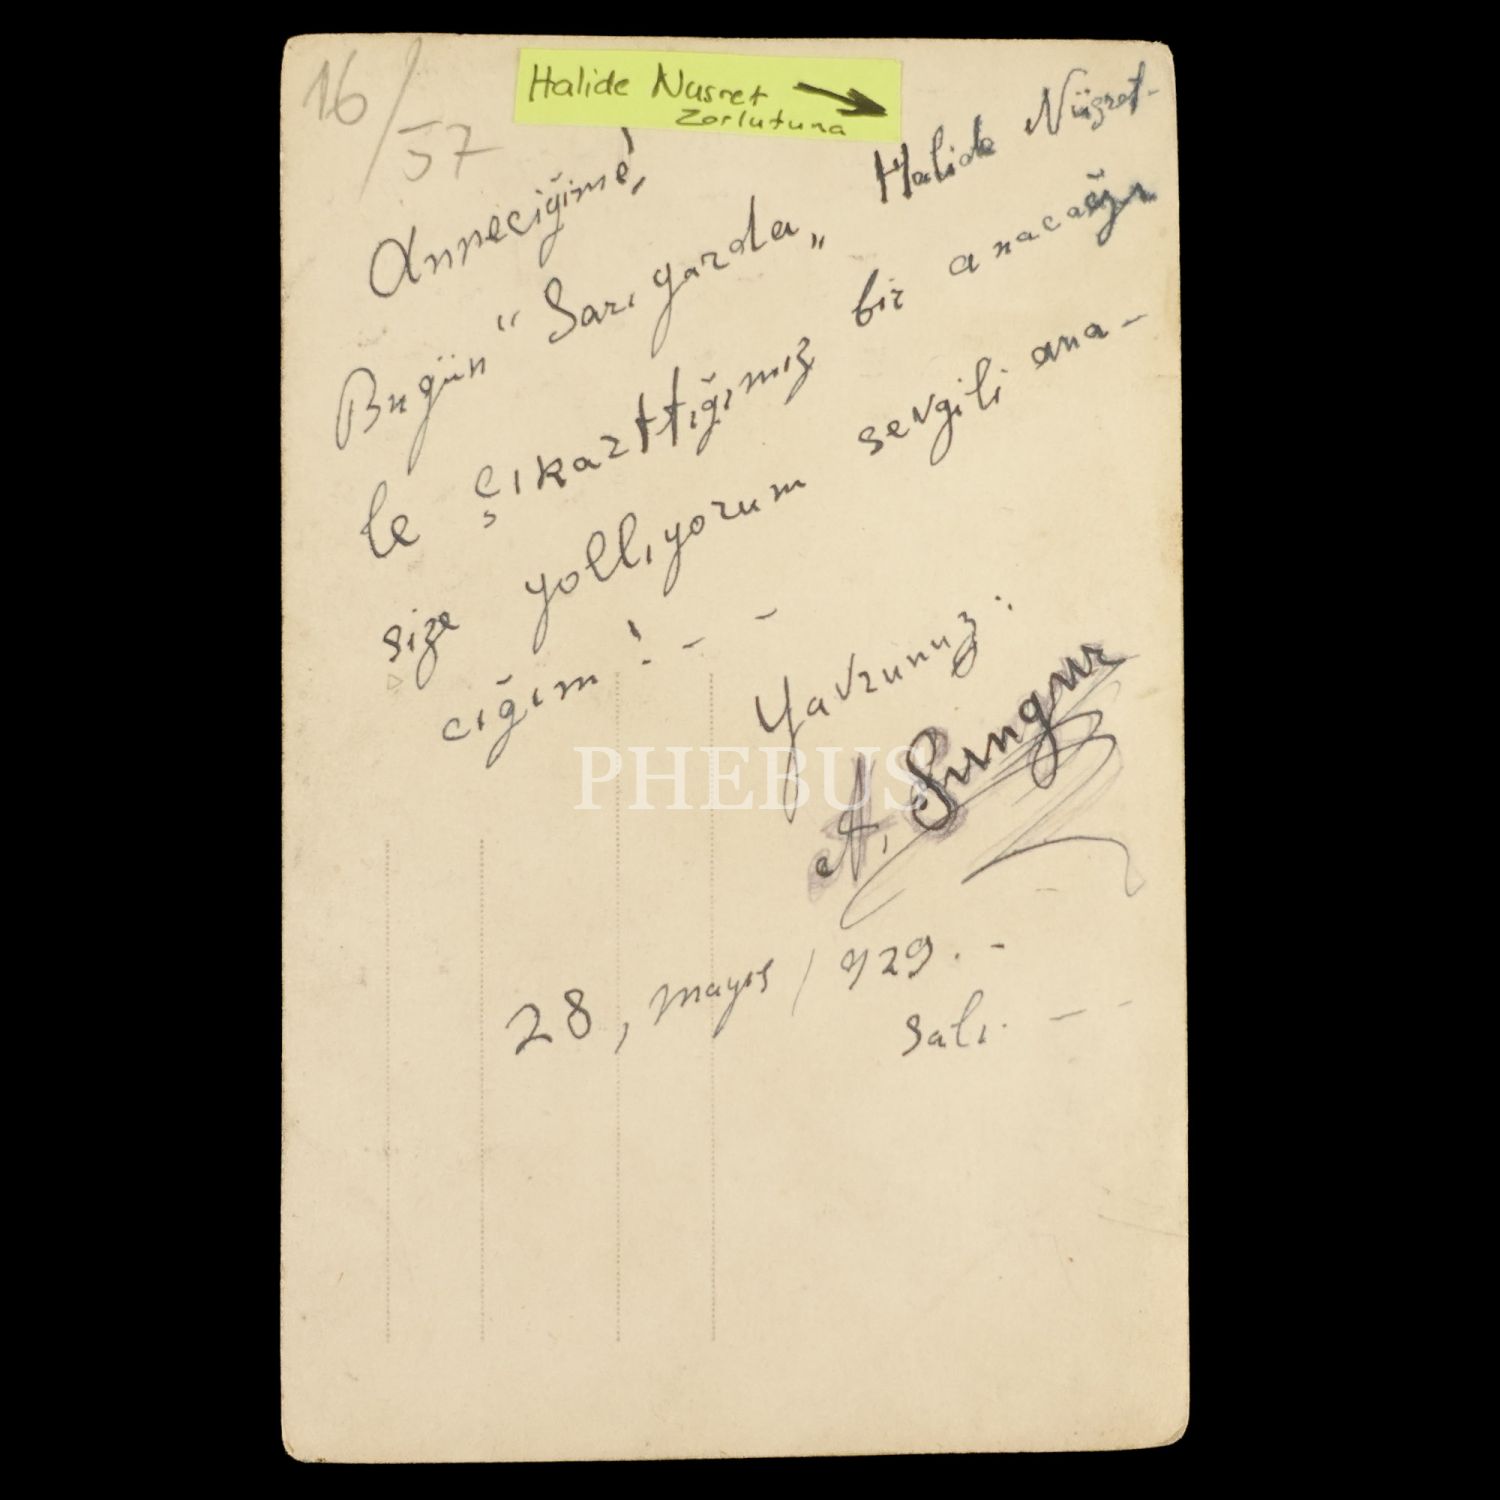 16/57
Halide Nusret
Zorlutuna
Anneciğime!,
Bugün " Sarı yazda „ Halide Nüsret-
le çıkarttığımız bir anacağı
size yollıyorum sevgili ana-
cığım! - -
Yavrunuz:
A. Sungur
28, mayıs / 929. -
Salı. - -
PHEBUS